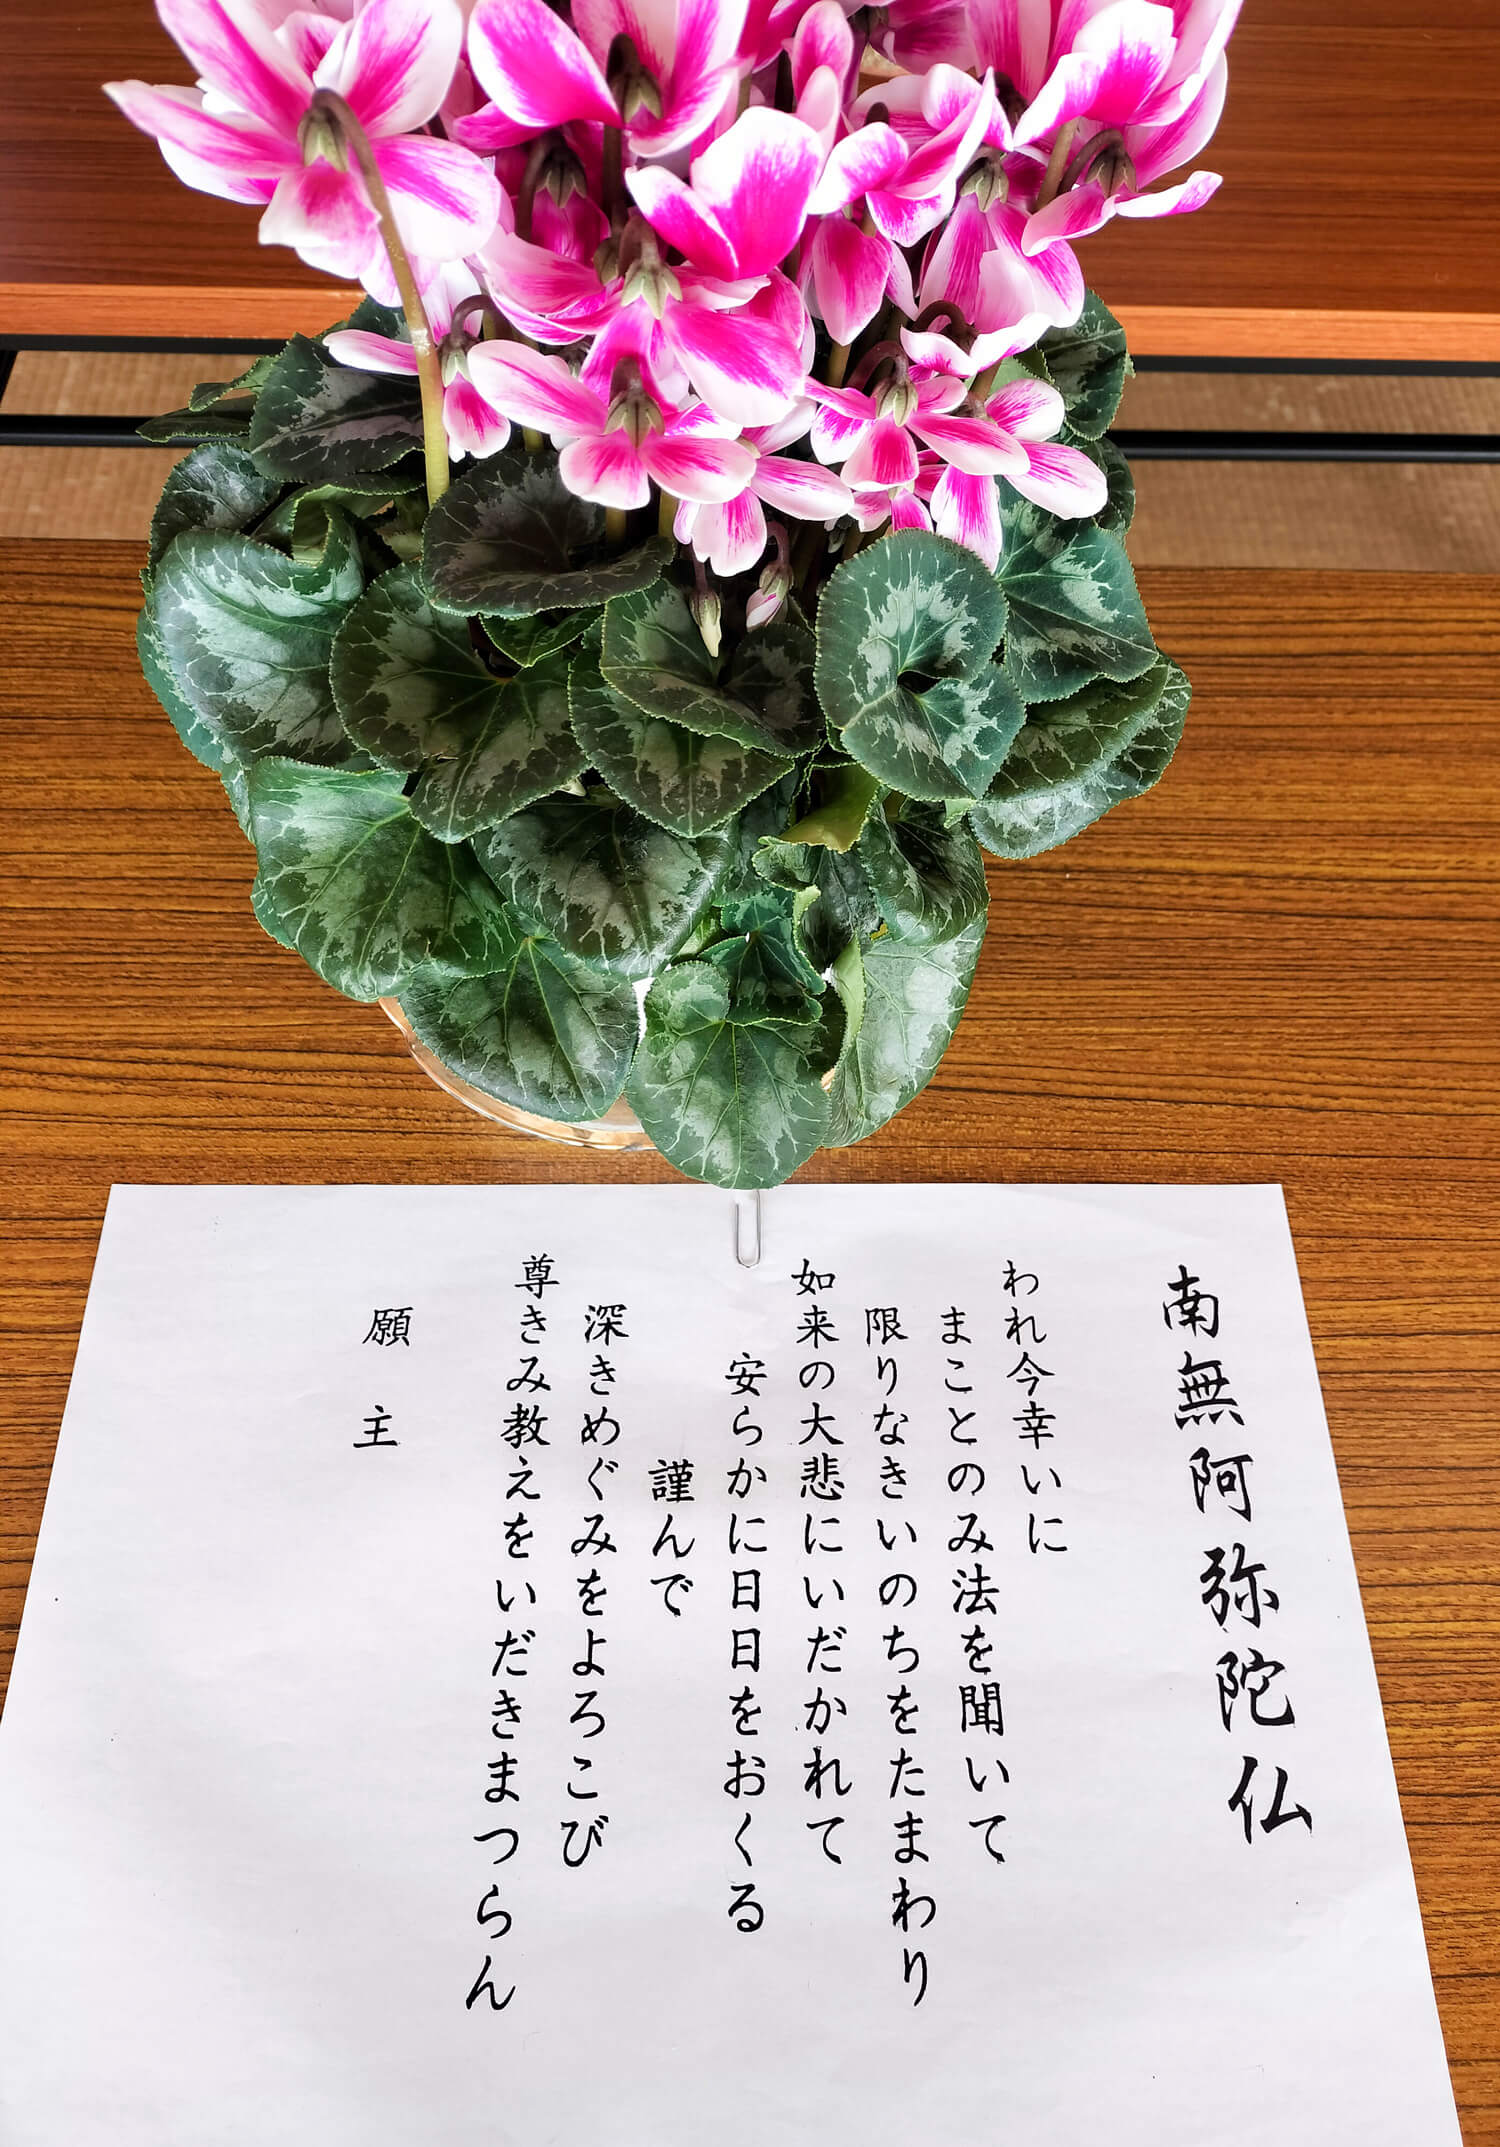 南無阿弥陀仏
われ今幸いに
まことのみ法を聞いて
限りなきいのちをたまわり
如来の大悲にいだかれて
安らかに日日をおくる
謹んで
深きめぐみをよろこび
尊きみ教えをいだきまつらん
願主